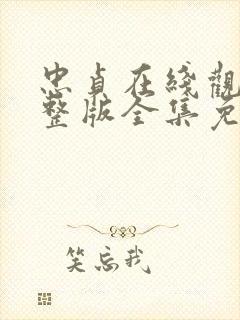 忠貞在綫觀
整版全集免
笑忘我